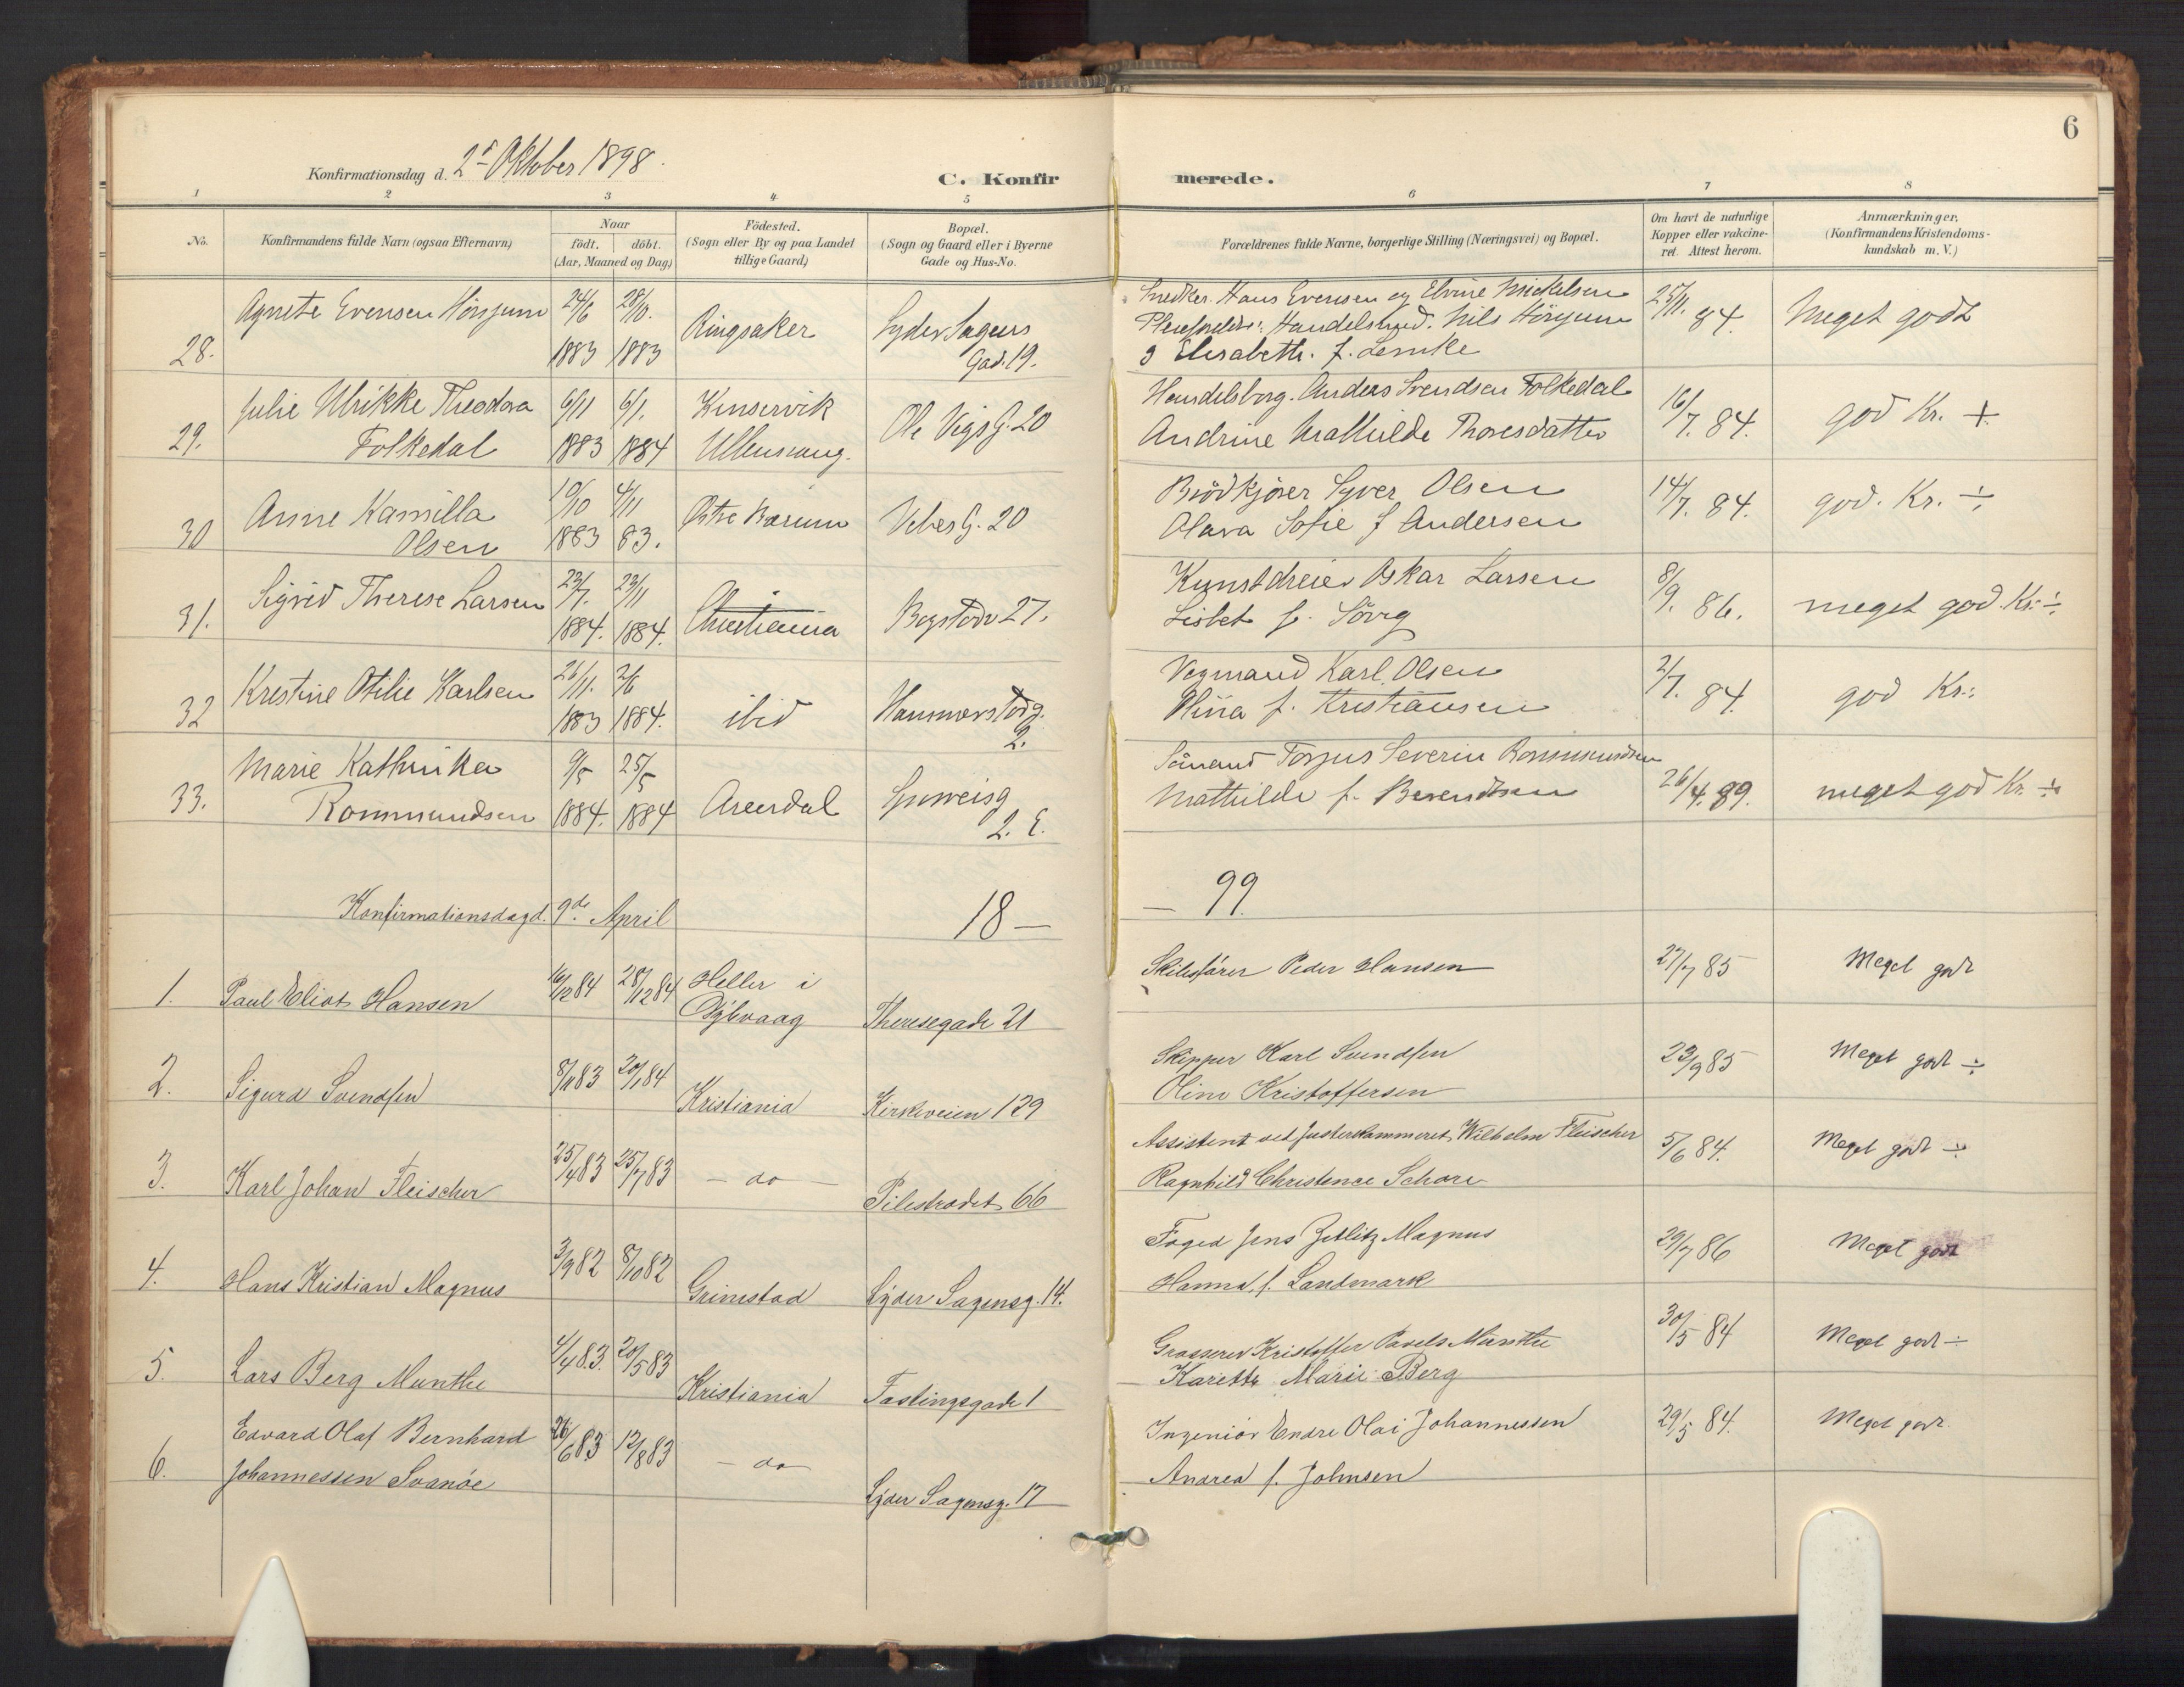 6
Konfirmationsdag d. 2den Oktober 1898.
C. Konfirmerede.
1 2 3 4 5 6 7 8
No.
Konfirmandens fulde Navn (ogsaa Efternavn)
Naar
födt. döbt.
(Aar, Maaned og Dag)
Födested.
(Sogn eller By og paa Landet
tillige Gaard)
Bopæl.
(Sogn og Gaard eller i Byerne
Gade og Hus-No.
Forældrenes fulde Navne, borgerlige Stilling (Næringsvei) og Bopæl.
Om havt de naturlige
Kopper eller vakcine-
ret. Attest herom.
Anmærkninger.
(Konfirmandens Kristendoms-
kundskab m. V.)
28. Agnete Evensen Hörsjum 24/6 1883 28/10. 1883 Ringsaker Lyder Sagens Gad. 19.
Snedker Hans Evensen og Elvine Mickelsen
Pleieforeldre: Handelsmd. Nils Hörsjum
o Elisabeth. f. Lemke
25/11. 84. Meget godt
29. Julie Ulrikke Theodora
Folkedal
6/11 1883 6/1. 1884 Kinservik
Ullensvang.
Ole Vigs G. 20
Handelsborg. Anders Svendsen Folkedal
Andrine Mathilde Thoresdatter
16/7. 84. god Kr. +
30 Anne Kamilla
Olsen
10/10 1883 4/11 83. Østre Bærum Vibes G. 20
Brödkjörer Syver Olsen
Olava Sofie f Andersen
14/7. 84. god. Kr. ÷
31. Sigrid Therese Larsen 23/7. 1884. 23/11 1884. Christiania Bogstadv 27.
Kunstdreier Oskar Larsen
Lisbet f. Sörg
8/9. 86. meget god. Kr. ÷
32 Kristine Otilie Karlsen 26/11. 1883 2/6 1884. ibid Hammerstadg.
2.
Vognmand Karl Olsen
Mina f. Kristiansen
2/7. 84. god Kr.:
33. Marie Kathinka
Rommundsen
9/5 1884. 25/5 1884 Arendal
2. E.
Sömand Torjus Severin Rommundsen
Mathilde f. Berendtsen
26/4. 89. meget god Kr. ÷
Konfirmationsdag d. 9de April 18 — — 99.
1. Paul Eliot Hansen 16/12 84 28/12 84 Heller i
Dybvaag
Theresegade 21
Skibsförer Peder Hansen
27/7 85 Meget godt
2. Sigurd Svendsen 8/11 83 20/1 84 Kristiania Kirkeveien 129
Skipper Karl Svendsen
Oline Kristoffersen
23/9 85 Meget godt ÷
3. Karl Johan Fleischer 25/4 83 25/7 83 — do — Pilestrædet 66
Assistent ved Justerkammeret Wilhelm Fleischer
Ragnhild Christence Schore
5/6 84. Meget godt ÷
4. Hans Kristian Magnus 3/9 82 8/10 82 Grimstad Lyder Sagensg. 14.
Foged Jens Zetlitz Magnus
Hanna, f. Landmark
29/7 86 Meget godt
5. Lars Berg Munthe 4/4 83. 20/5 83 Kristiania Fastingsgade 1
Grosserer Kristoffer Pavels Munthe
Karette Marie Berg
30/5 84 Meget godt ÷
6. Edvard Olaf Bernhard
Johannessen Svanöe
26/6 83 12/8 83 — do Lyder Sagensg. 17
Ingeniör Endre Olai Johannessen
Andrea f. Johnsen
29/5 84. Meget godt